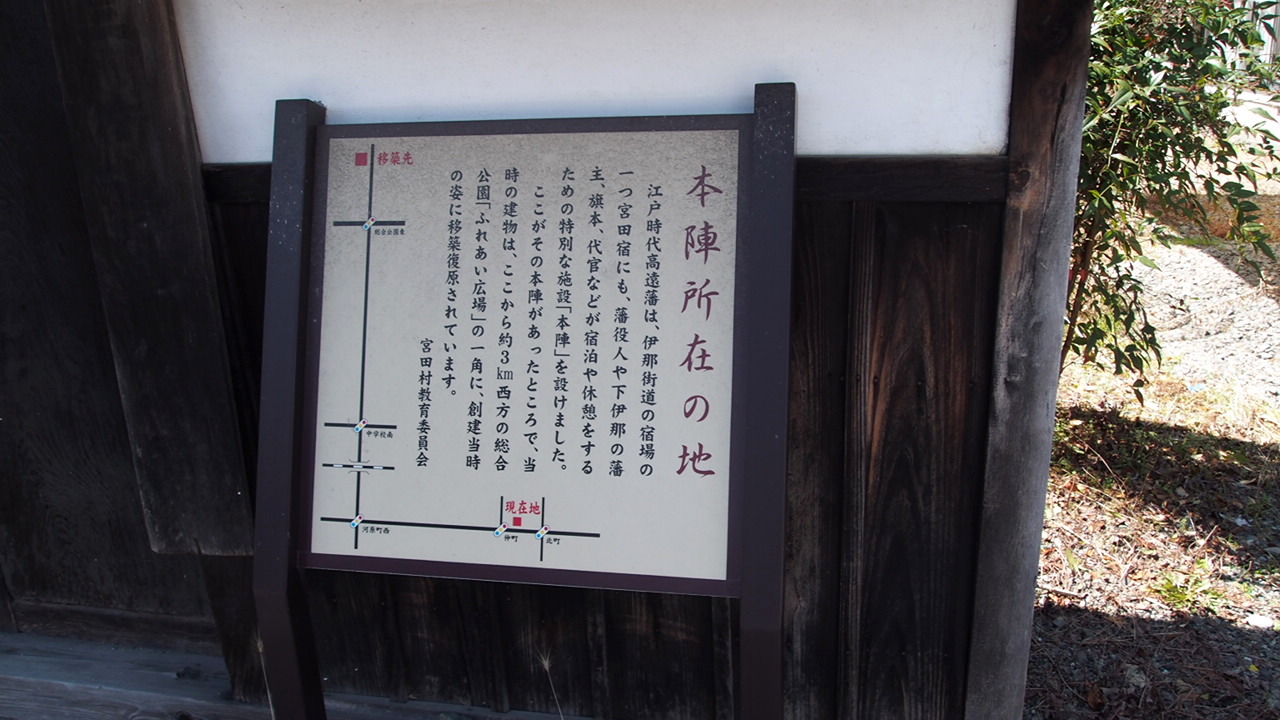 本陣所在の地
江戸時代高遠藩は、伊那街道の宿場の
一つ宮田宿にも、藩役人や下伊那の藩
主、旗本、代官などが宿泊や休憩をする
ための特別な施設「本陣」を設けました。
ここがその本陣があったところで、当
時の建物は、ここから約3km西方の総合
公園「ふれあい広場」の一角に、創建当時
の姿に移築復原されています。
宮田村教育委員会
移築先
総合公園東
中学校南
河原町西
現在地
仲町
北町